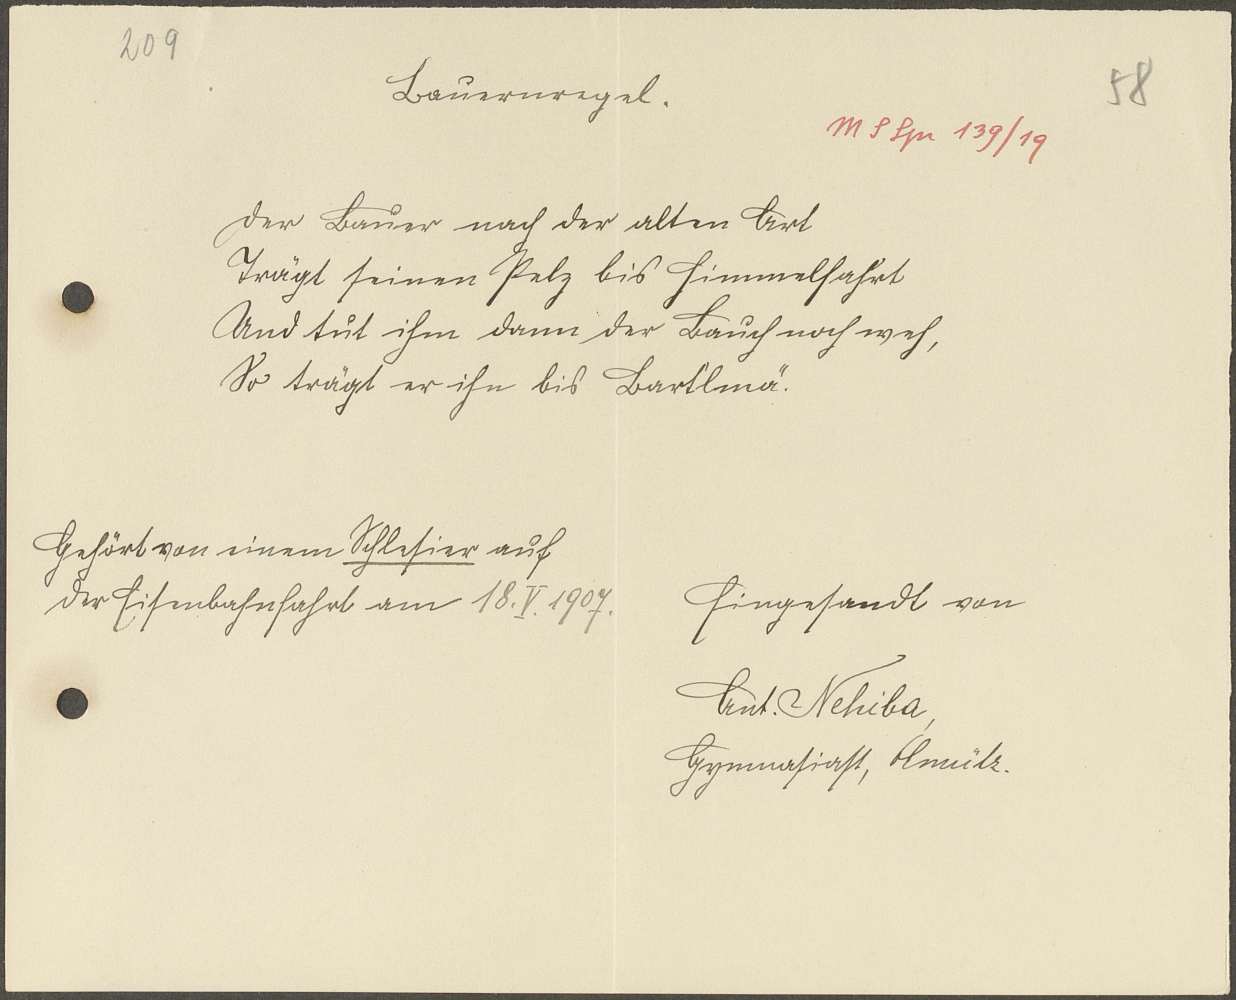 209
58
Bauernregel.
M S Spr 139/19
Der Bauer nach der alten Art
Trägt seinen Pelz bis Himmelfahrt
Und tut ihm dann der Bauch noch weh,
So trägt er ihn bis Bartlmä.
Gehört von einem Schlesier auf
der Eisenbahnfahrt am 18. V. 1907.
Eingesandt von
Ant. Nehiba,
Gymnasiast, Olmütz.